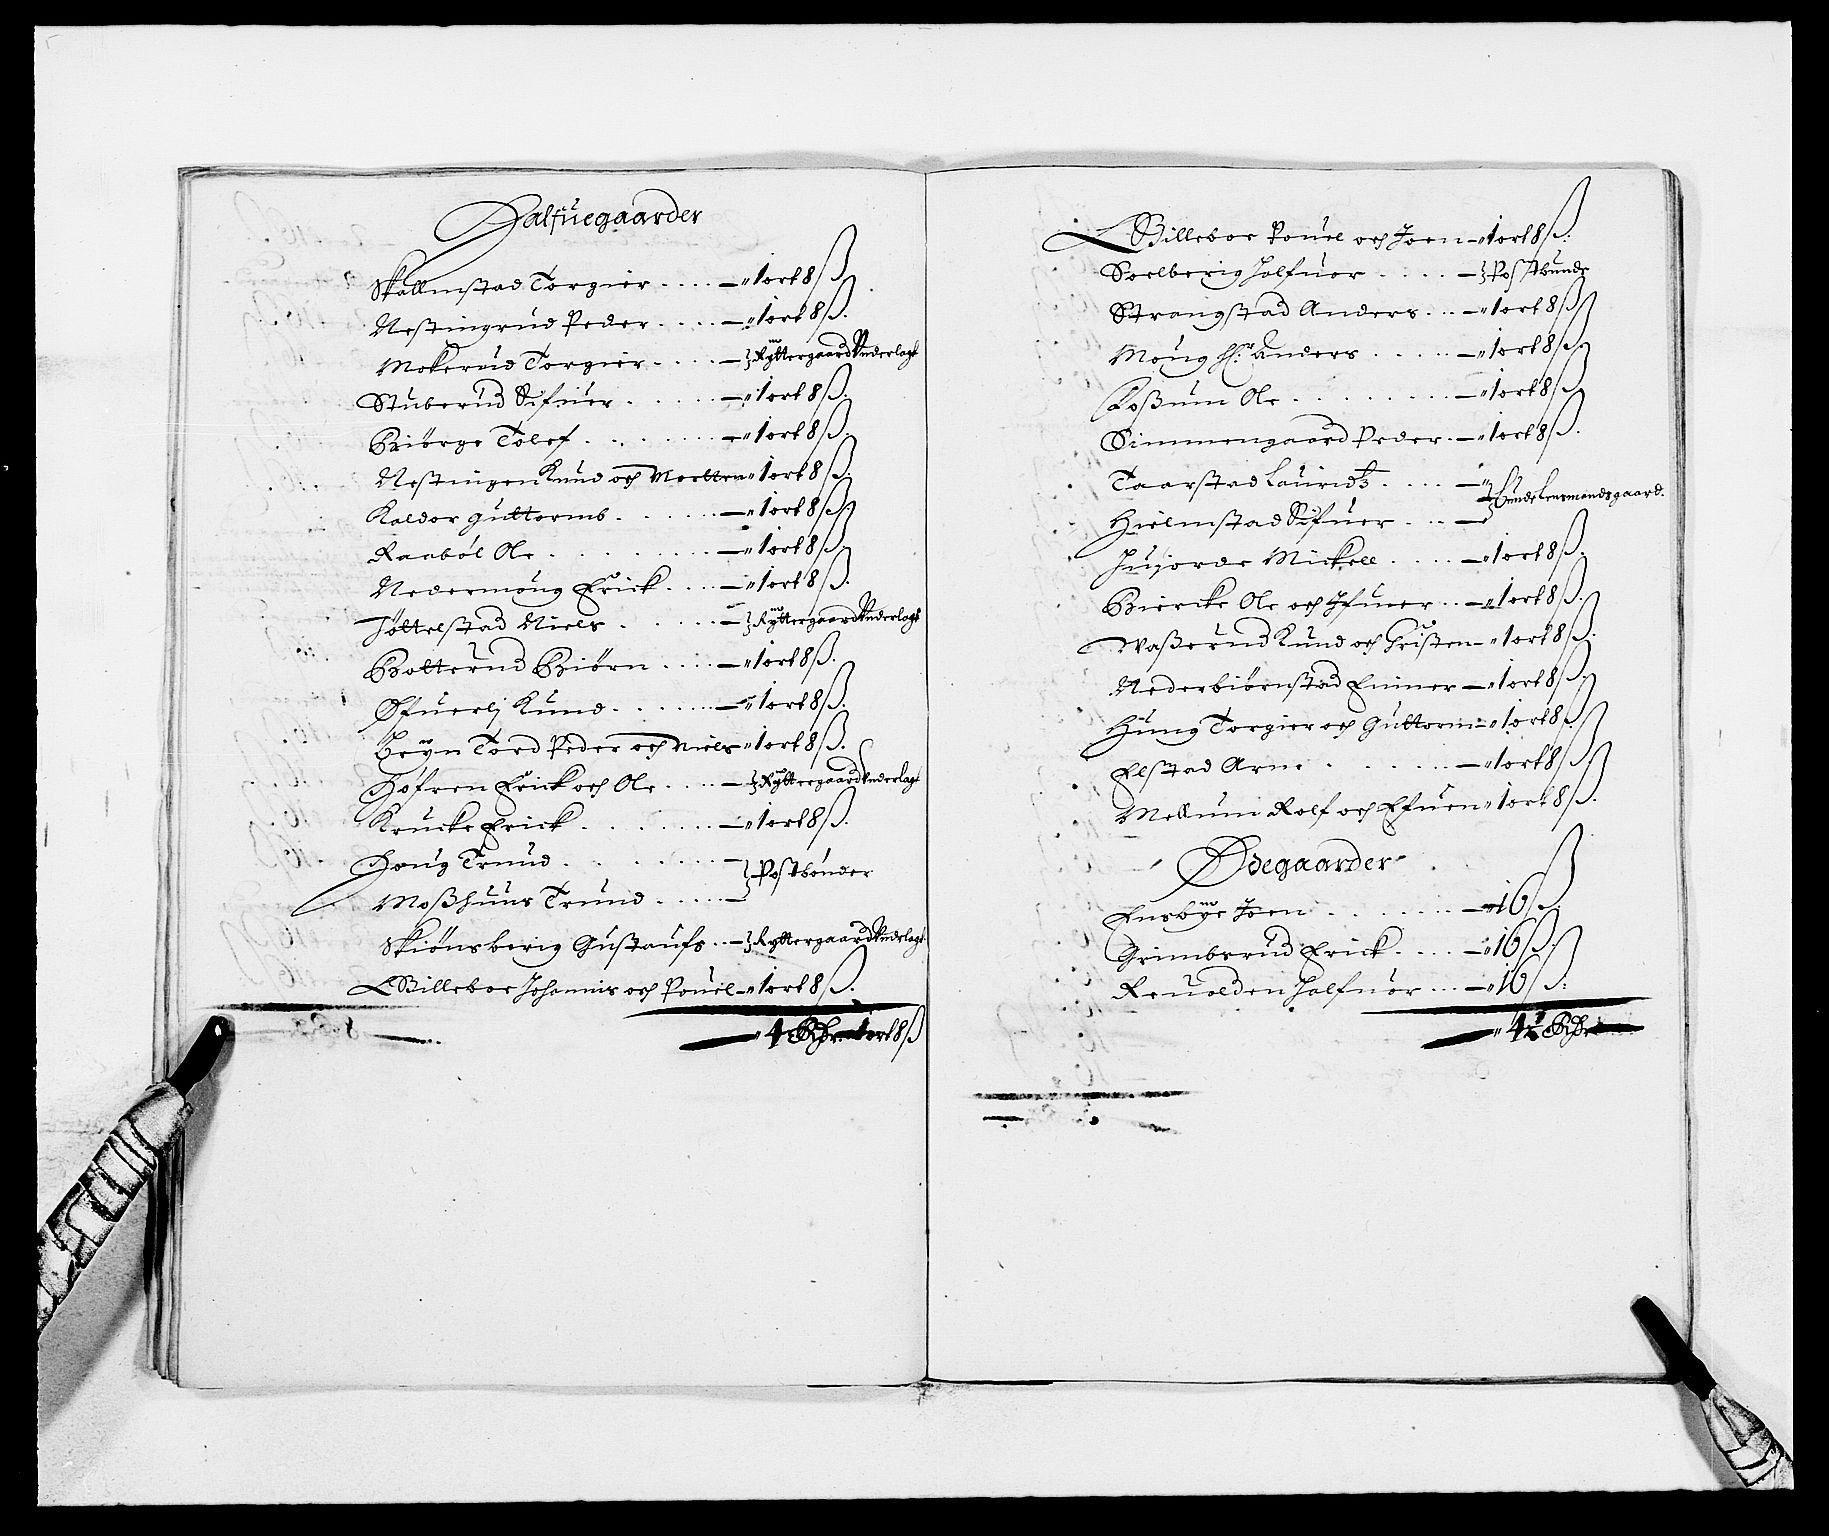 Halfuegaarder
Skallmstad Torgier . . . . — " 1 ort 8 ß.
Nestingrud Peder . . . . — " 1 ort 8 ß.
Mokerud Torgier . . . . — } Ryttergaard Vnderlagt
Stuberud Sifuer . . . . . — " 1 ort 8 ß.
Biörge Tolef . . . . . . — " 1 ort 8 ß.
Nestingen Knud och Morten " 1 ort 8 ß.
Kaldor Guttormb . . . . . — " 1 ort 8 ß
Raaböl Ole . . . . . . . — " 1 ort 8 ß.
Nedermoug Erick . . . . — " 1 ort 8 ß.
Jöttelstad Niels . . . . . — } Ryttergaard Vnderlagt
Botterud Biörn . . . . — " 1 ort 8 ß.
Ofuerlj Knud . . . . . . — " 1 ort 8 ß.
Tord Peder och Niels " 1 ort 8 ß.
Höfren Erick och Ole . . . . — } Ryttergaard Vnderlagt
Krucke Erick . . . . . . — " 1 ort 8 ß.
Houg Trund . . . . . . —
} Postbönder
Moßhuus Trund . . . . . —
Skiönsberig Gustaufs . . — } Ryttergaard Vnderlagt
Billeboe Johannis och Pouel — " 1 ort 8 ß.
— " 4 Rdr 1 ort 8 ß
Billeboe Pouel och Joen — " 1 ort 8 ß.
Soelberig Halfuor . . . . — } Postbunde
Strangstad Anders . . . — " 1 ort 8 ß
Moug Hr. Anders . . . . . — " 1 ort 8 ß.
Foßum Ole . . . . . . . — " 1 ort 8 ß
Simmengaard Peder . — " 1 ort 8 ß.
Taarstad Lauridtz . . . . — "
} Bundelensmandsgaard.
Hielmstad Sifuer . . . —
Jujorde Mickell . . . . — " 1 ort 8 ß.
Biercke Ole och Ifuer . . — " 1 ort 8 ß.
Waßerud Knud och Christen — " 1 ort 8 ß.
Nederbiörnstad Einer — " 1 ort 8 ß.
Houg Torgier och Guttorm — " 1 ort 8 ß
Elstad Arne . . . . . . — " 1 ort 8 ß.
Mellum Rolf och Efuen " 1 ort 8 ß.
Ödegaarder
Ensbye Joen . . . . . . — " 16 ß.
Grimbsrud Erick . . . . — " 16 ß.
Reualden Halfuor . . . — " 16 ß.
— " 4 ½ Rdr